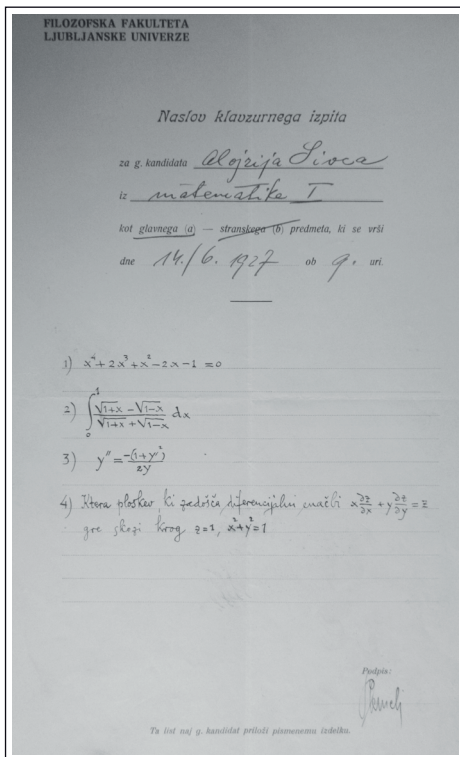 FILOZOFSKA FAKULTETA
LJUBLJANSKE UNIVERZE
Naslov klavzurnega izpita
za g. kandidata Alojzija
iz matematike I
kot glavnega (a) — stranskega (b) predmeta, ki se vrši
dne 14./6. 1927 ob 9. uri.
1) x⁴+2x³+x²-2x-1=0
2) ∫₀¹ (√1+x - √1-x)/(√1+x + √1-x) dx
3) y″ = -(1+y′²)/2y
4) Ktera ploskev, ki zadošča diferencijalni enačbi x ∂z/∂x + y ∂z/∂y = z
gre skozi krog z=1, x²+y²=1
Podpis:
Ta list naj g. kandidat priloži pismenemu izdelku.